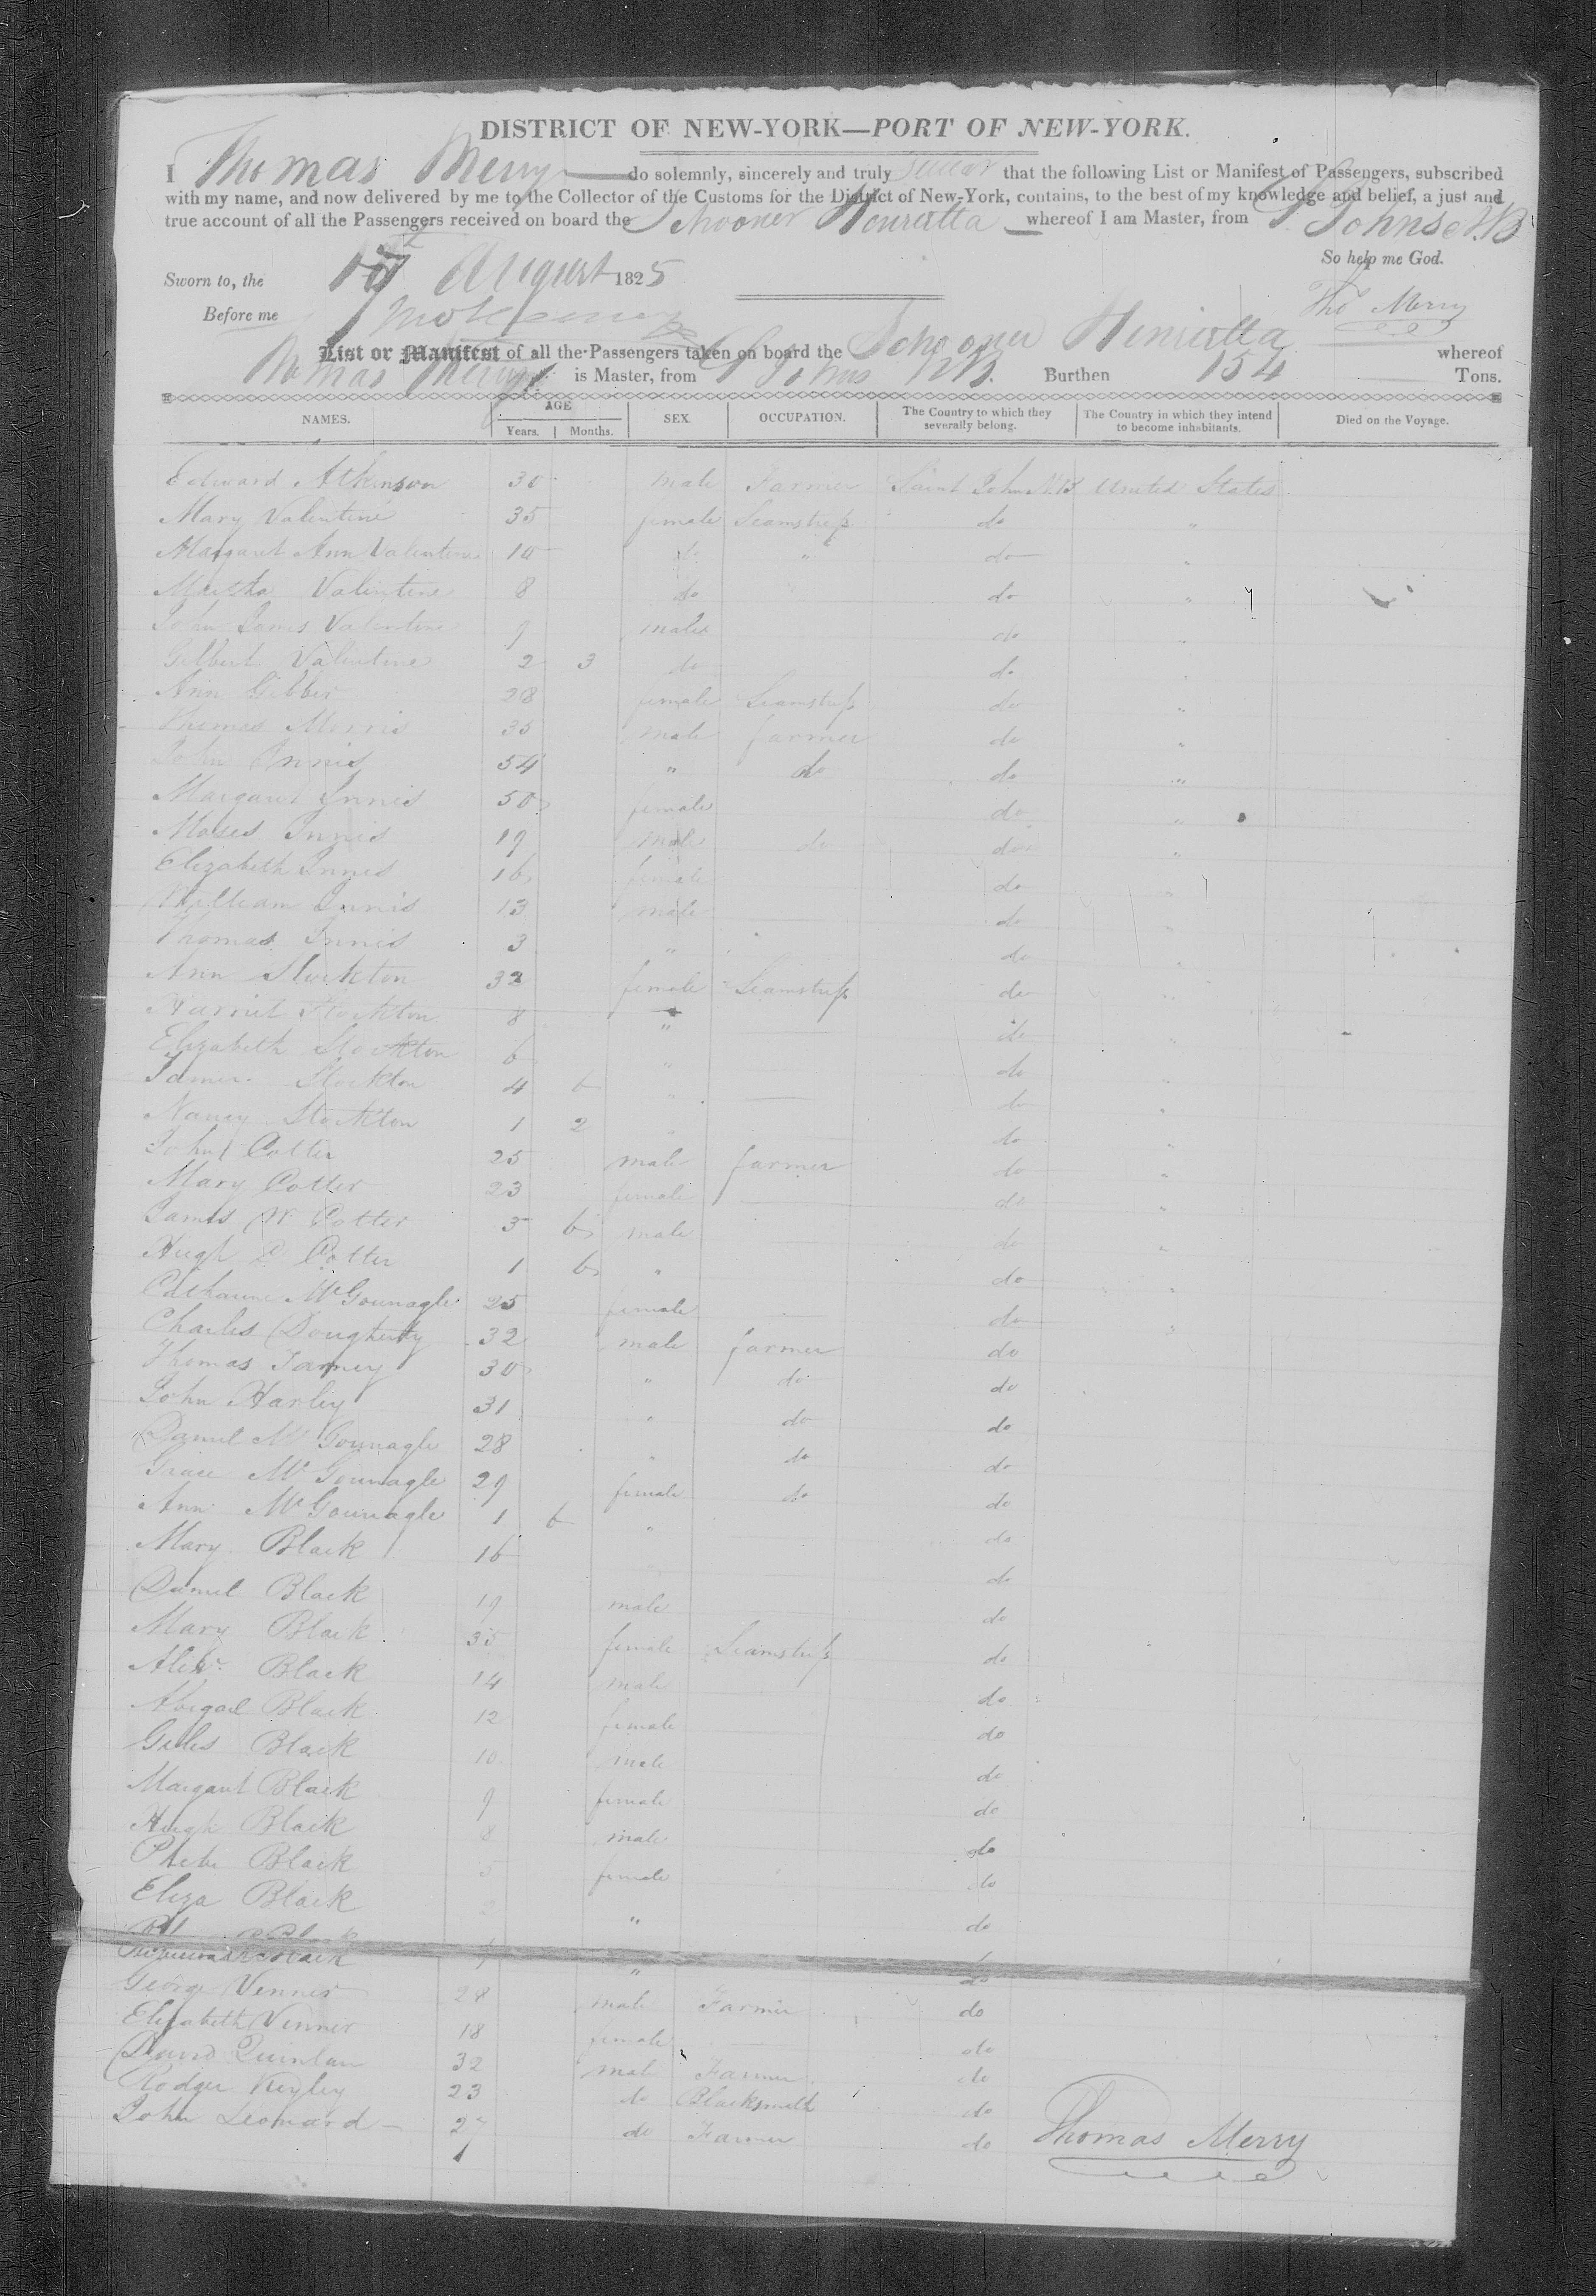 DISTRICT OF NEW-YORK—PORT OF NEW-YORK.
I Thomas Merry do solemnly, sincerely and truly swear that the following List or Manifest of Passengers, subscribed
with my name, and now delivered by me to the Collector of the Customs for the District of New-York, contains, to the best of my knowledge and belief, a just and
true account of all the Passengers received on board the Schooner Henrietta whereof I am Master, from St Johns N.B
So help me God.
Sworn to, the August 1825
Before me
Tho Merry
List or Manifest of all the Passengers taken on board the Schooner Henrietta whereof
Thomas Merry is Master, from St Johns N.B. Burthen 154 Tons.
NAMES. AGE Years. Months. SEX. OCCUPATION. The Country to which they severally belong. The Country in which they intend to become inhabitants. Died on the Voyage.
Edward Atkinson 30 male Farmer Saint John N.B United States
Mary Valentine 35 female Seamstress do "
Margaret Ann Valentine 10 do " do "
Martha Valentine 8 do do "
John James Valentine 9 males do "
Gilbert Valentine 2 3 do do "
Ann Gibber 28 female Seamstress do "
Thomas Morris 35 male farmer do "
John Innis 54 " do do "
Margaret Innis 50 female do "
Moses Innis 19 male do do "
Elizabeth Innis 16 female do "
William Innis 13 male do "
Thomas Innis 3 " do "
Ann Stockton 32 female Seamstress do "
Harriet Stockton 8 " do "
Elizabeth Stockton 6 " do "
Stockton 4 6 " do "
Nancy Stockton 1 2 " do "
John Potter 25 male farmer do "
Mary Potter 23 female do "
James W. Potter 3 6 male do "
Hugh Potter 1 6 " do "
Catharine McGounagle 25 female do "
Charles Dougherty 32 male farmer do
Thomas 30 " do do
John Harley 31 " do do
Daniel McGounagle 28 " do do
Grace McGounagle 29 female do do
Ann McGounagle 1 6 " do
Mary Black 16 do
Daniel Black 19 male do
Mary Black 35 female Seamstress do
Alexr. Black 14 male do
Abigail Black 12 female do
Giles Black 10 male do
Margaret Black 9 female do
Hugh Black 8 male do
Phebe Black 5 female do
Eliza Black 2 " do
Black " do
George Venner 28 male Farmer do
Elizabeth Venner 18 female do
David Quinlan 32 male Farmer do
Rodger Kegley 23 do Blacksmith do
John Leonard 27 do Farmer do
Thomas Merry